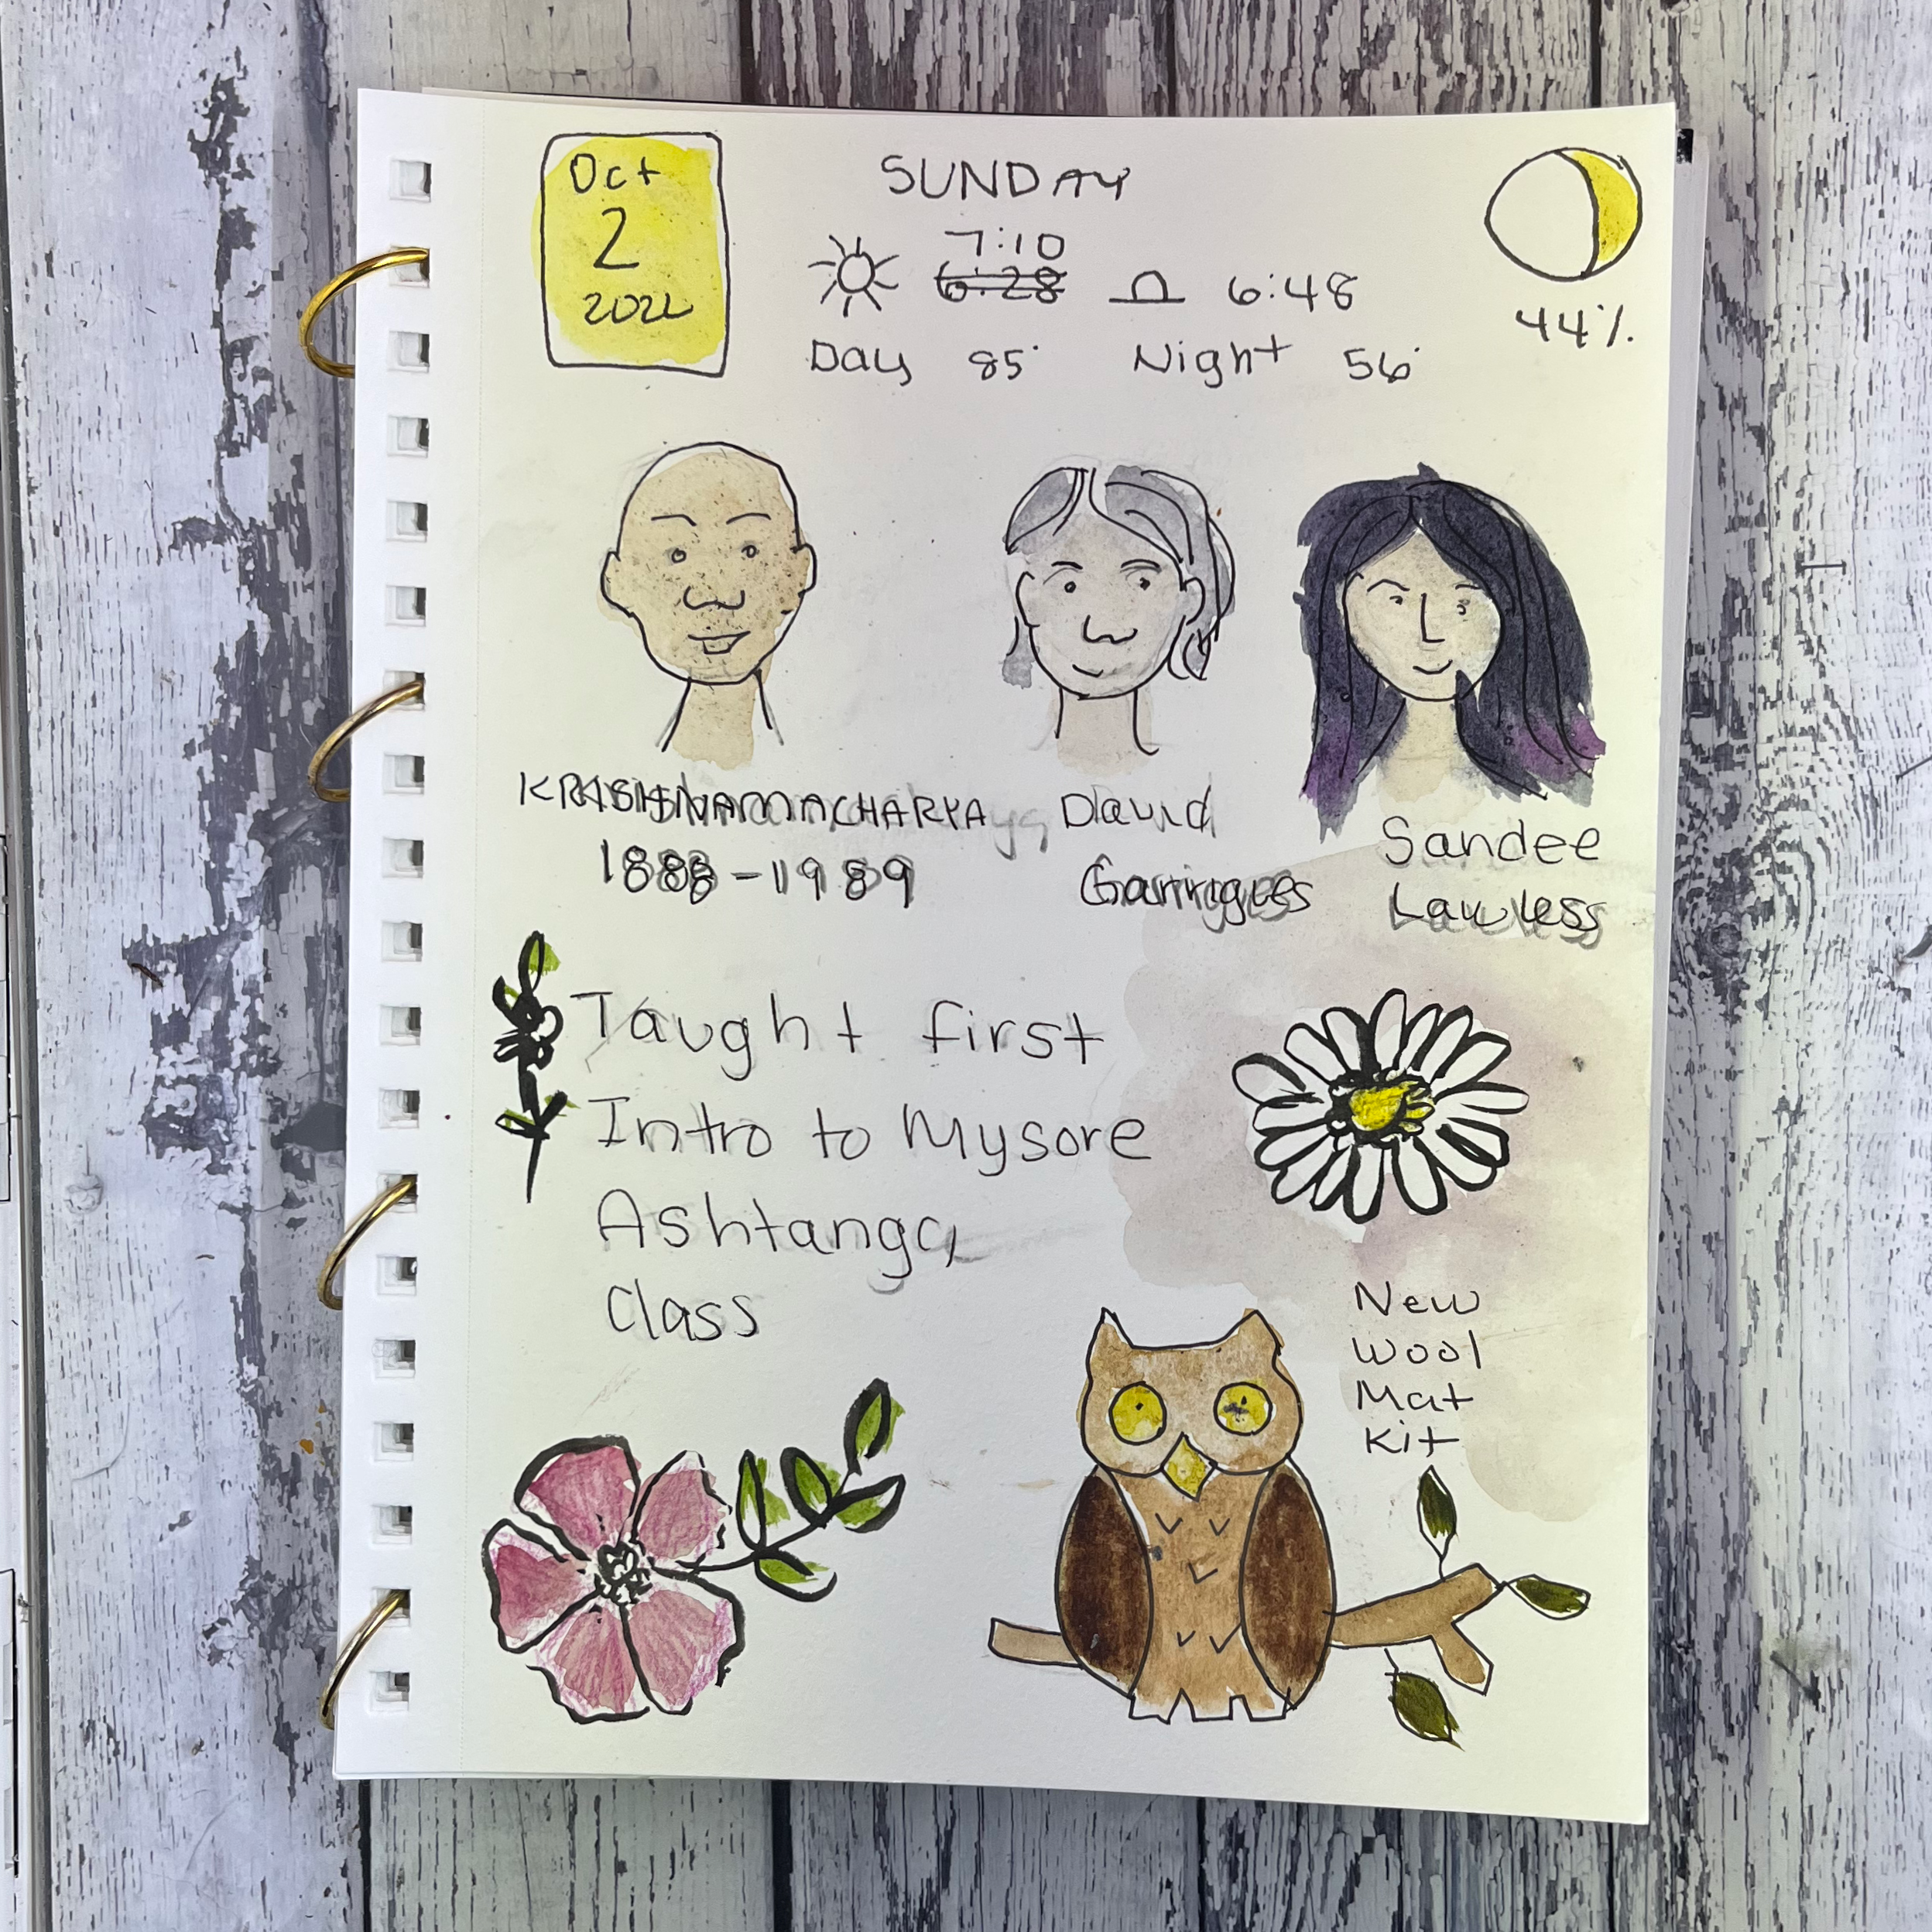 Oct
2
2022
SUNDAY
7:10
6:28
6:48
Day 85°
Night 56°
44%
KRISHNAMACHARYA
1888-1989
David
Garrigues
Sandee
Lawless
Taught first
Intro to Mysore
Ashtanga
Class
New
Wool
Mat
Kit